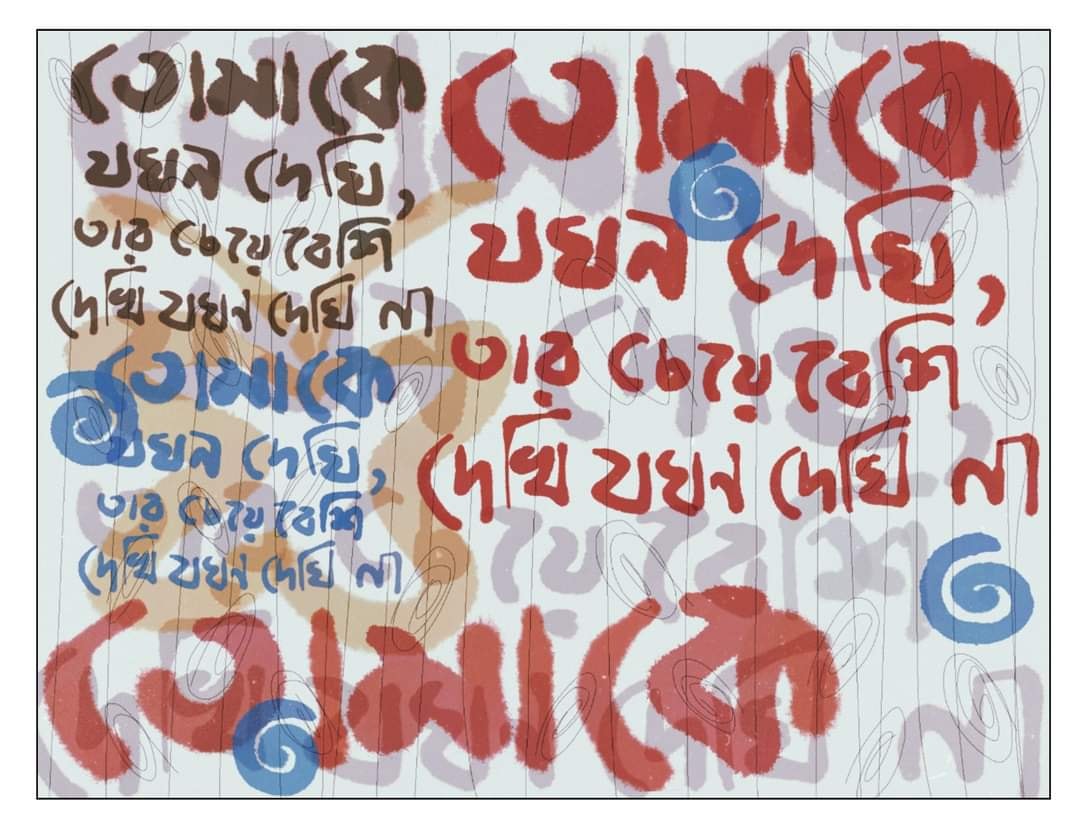 তোমাকে
যখন দেখি,
তার চেয়ে বেশি
দেখি যখন দেখি না
তোমাকে
যখন দেখি,
তার চেয়ে বেশি
দেখি যখন দেখি না
তোমাকে
যখন দেখি,
তার চেয়ে বেশি
দেখি যখন দেখি না
তোমাকে